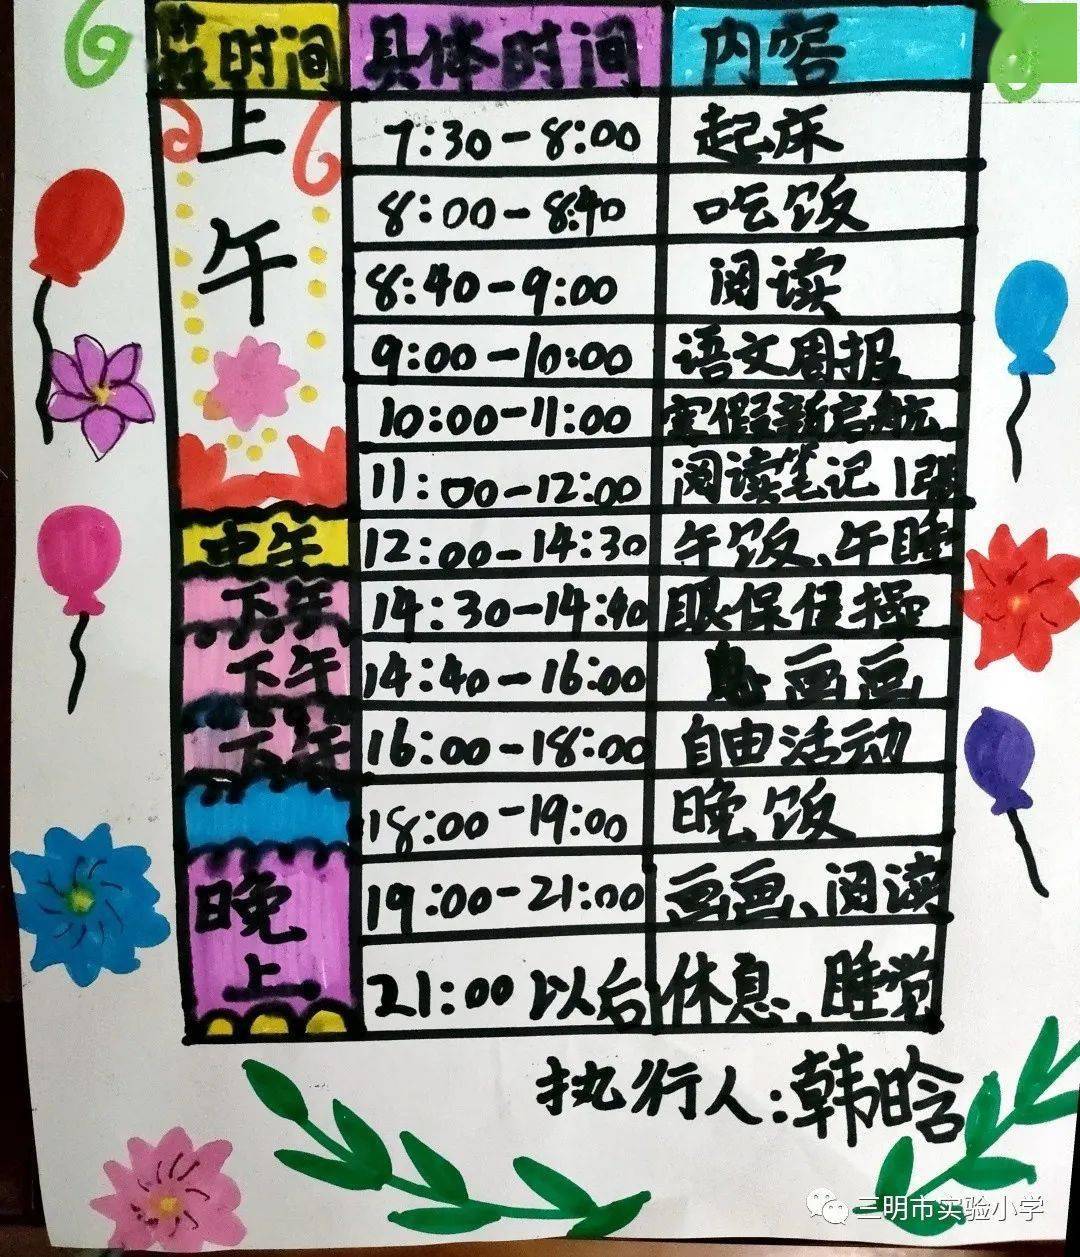 时间 具体时间 内容
上午
7:30-8:00 起床
8:00-8:40 吃饭
8:40-9:00 阅读
9:00-10:00 语文周报
10:00-11:00 寒假新启航
11:00-12:00 阅读笔记1张
中午 12:00-14:30 午饭、午睡
下午 14:30-14:40 眼保健操
下午 14:40-16:00 画画
下午 16:00-18:00 自由活动
18:00-19:00 晚饭
晚上
19:00-21:00 画画、阅读
21:00以后 休息、睡觉
执行人:韩晗
三明市实验小学